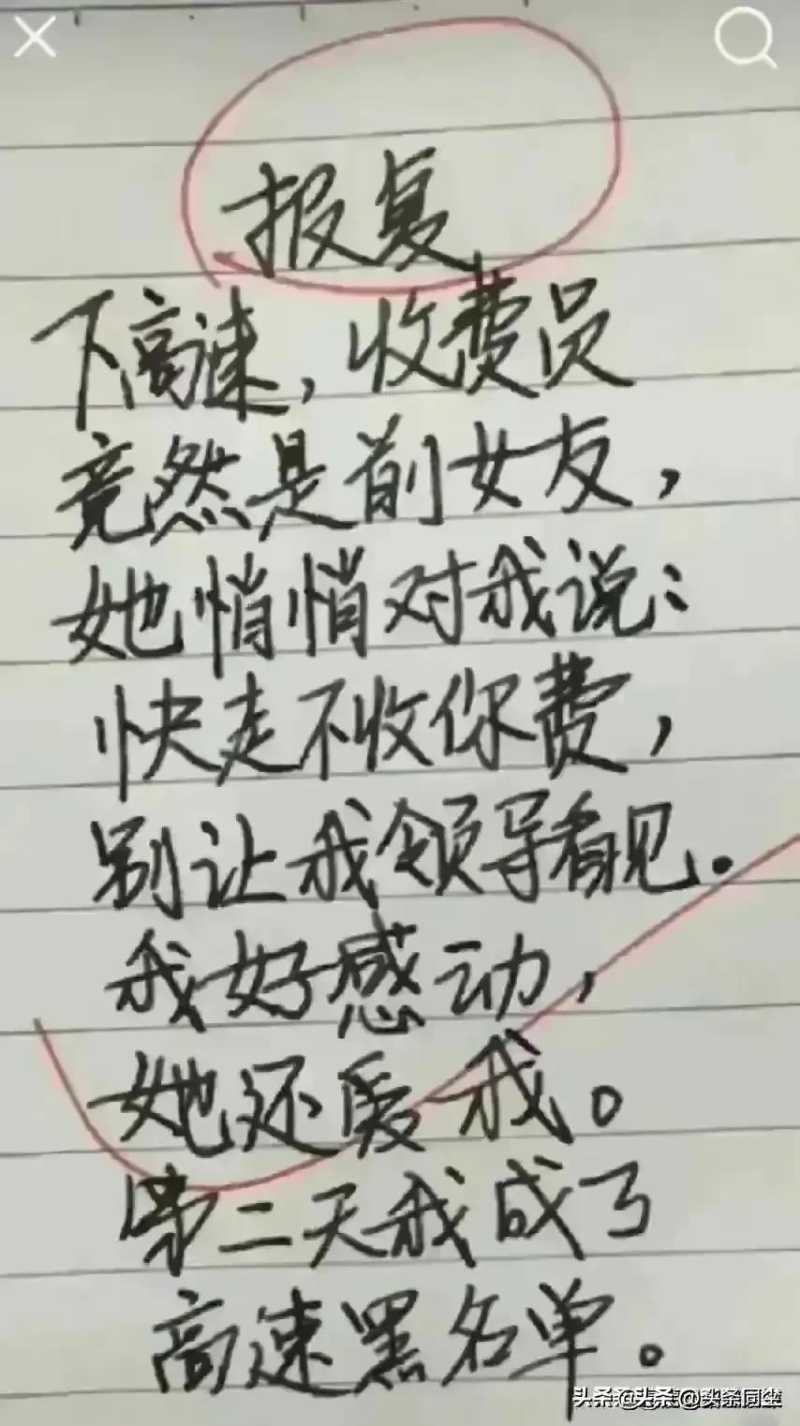 报复
下高速，收费员
竟然是前女友，
她悄悄对我说：
快走不收你费，
别让我领导看见。
我好感动，
她还爱我。
第二天我成了
高速黑名单。